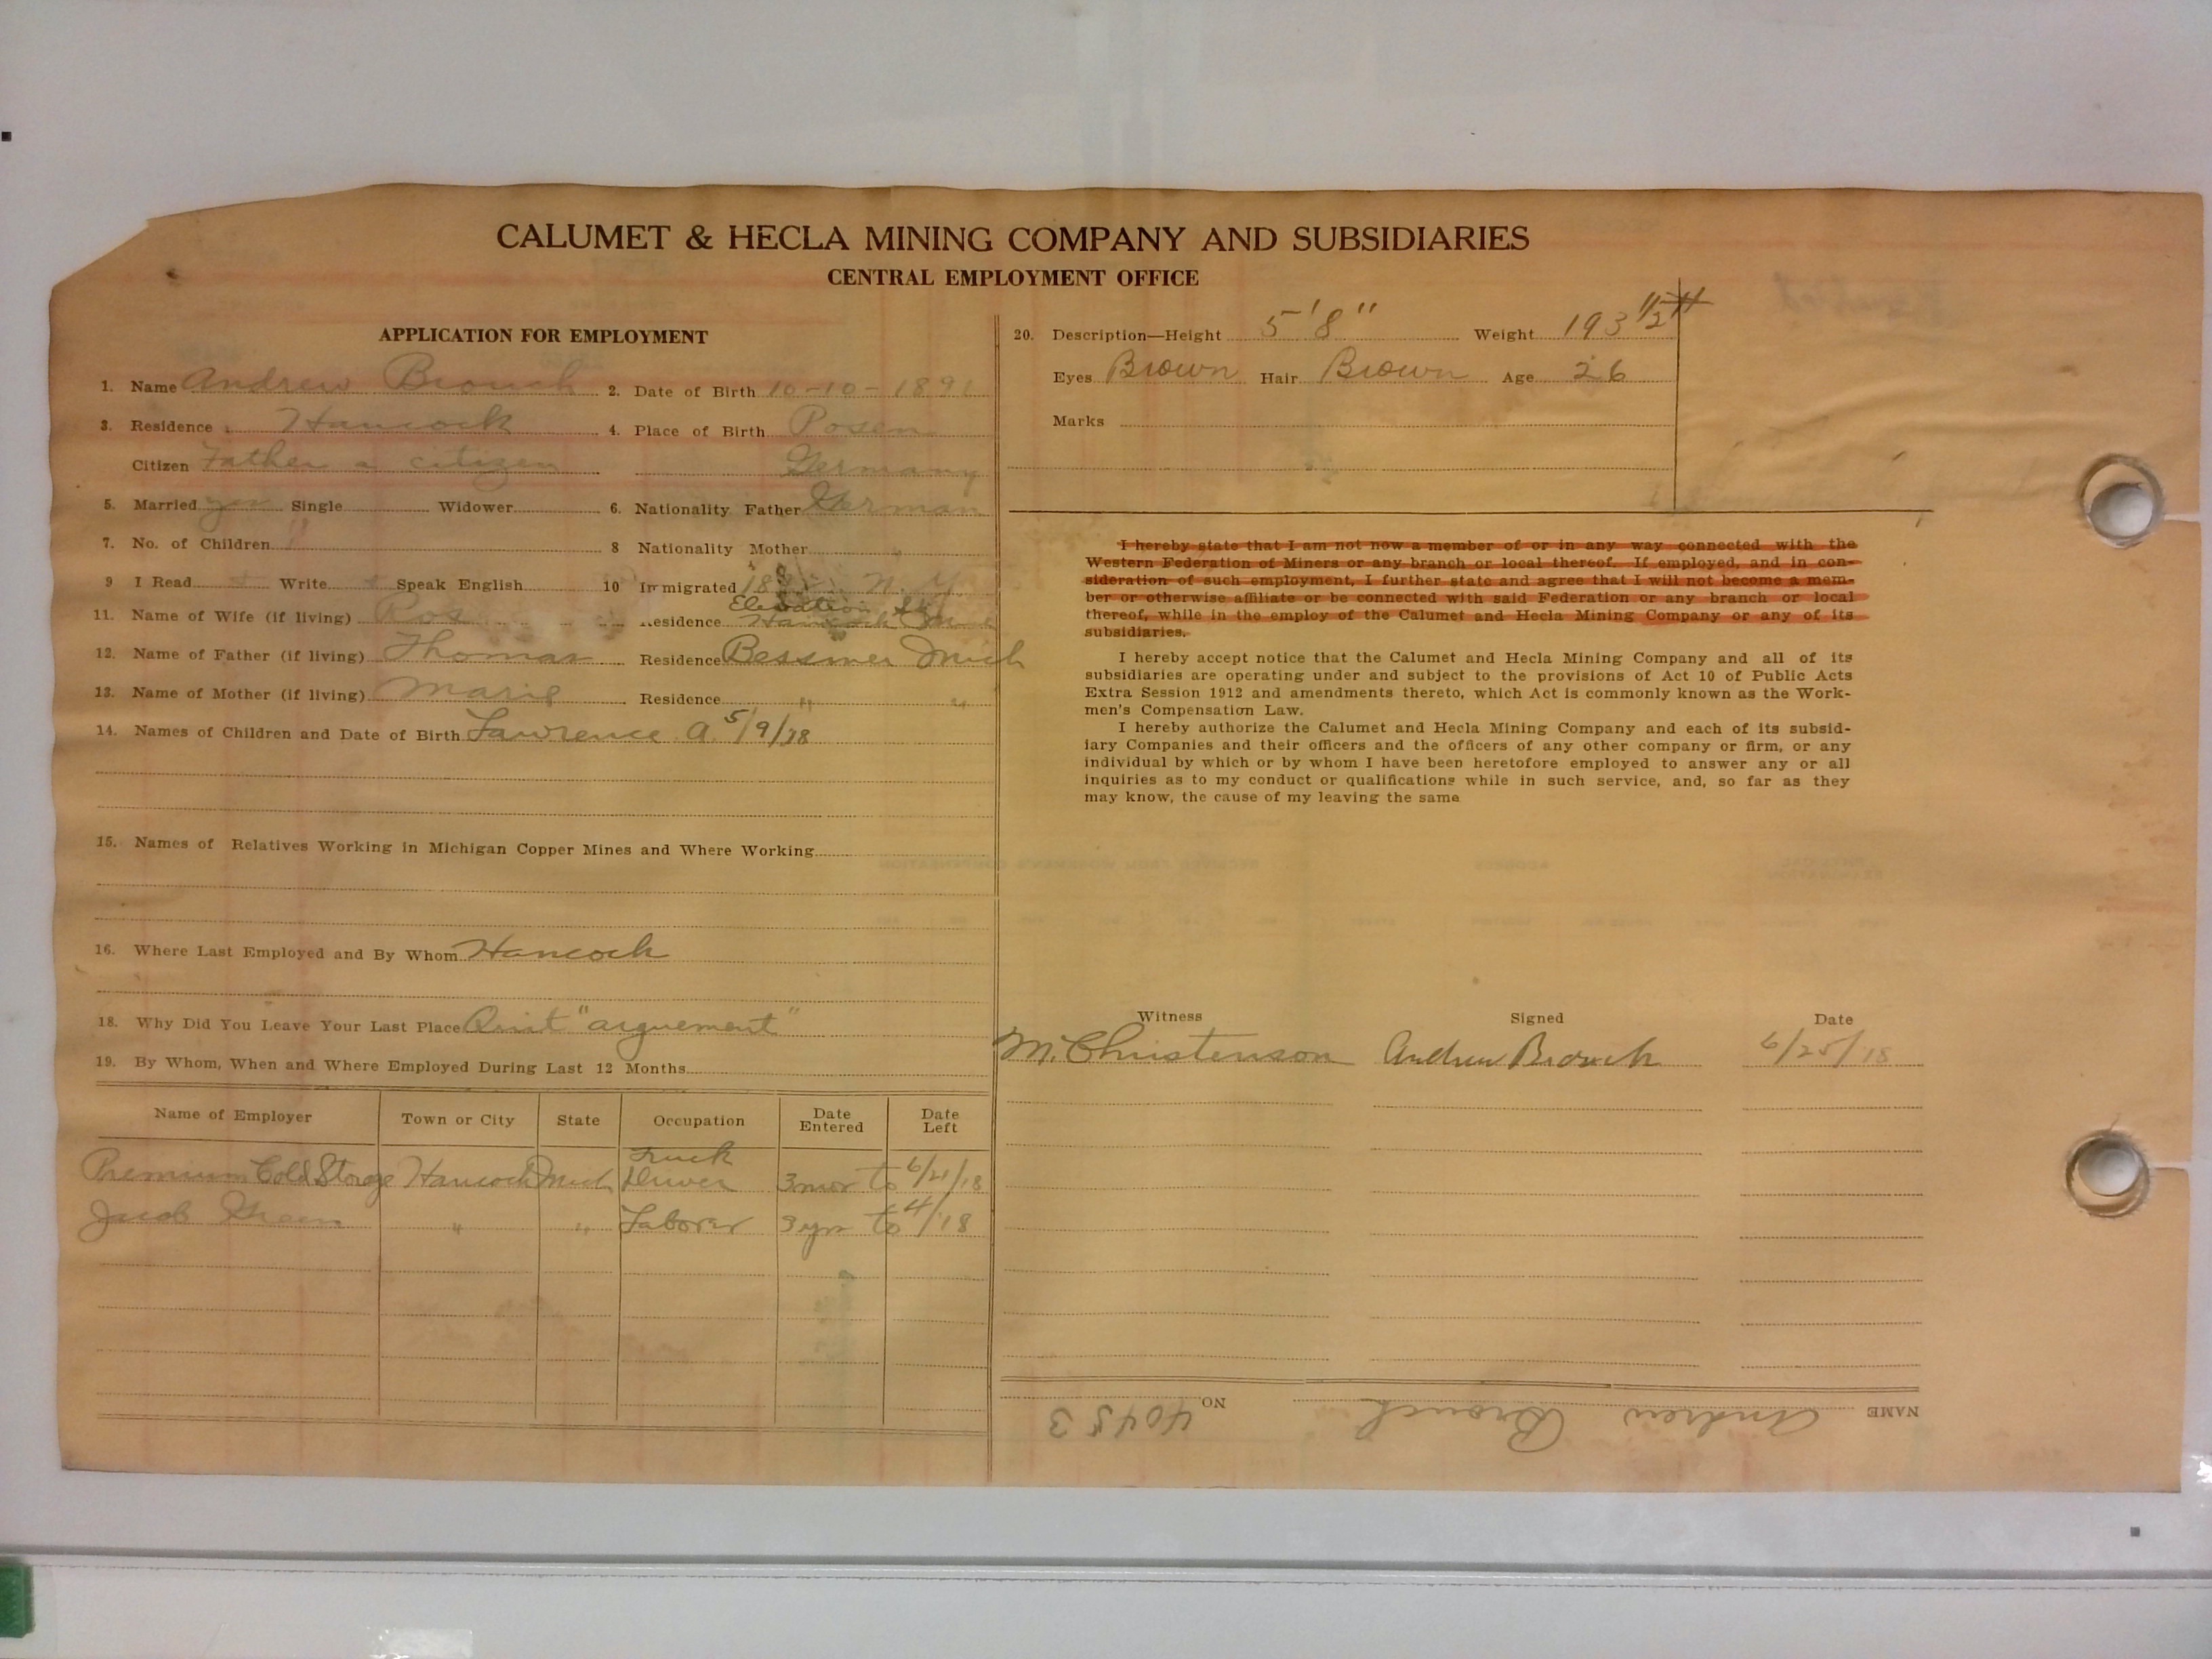 CALUMET & HECLA MINING COMPANY AND SUBSIDIARIES
CENTRAL EMPLOYMENT OFFICE
APPLICATION FOR EMPLOYMENT
1. Name Andrew Brouch 2. Date of Birth 10-10-1891
3. Residence Hancock 4. Place of Birth Posen
Citizen Father a citizen Germany
5. Married yes Single Widower 6. Nationality Father German
7. No. of Children 8 Nationality Mother "
9 I Read Write Speak English 10 Immigrated N.Y.
11. Name of Wife (if living) Residence Elevation St
Hancock
12. Name of Father (if living) Thomas Residence Bessmer Mich
13. Name of Mother (if living) Marie Residence " "
14. Names of Children and Date of Birth Lawrence A. 5/9/18
15. Names of Relatives Working in Michigan Copper Mines and Where Working
16. Where Last Employed and By Whom Hancock
18. Why Did You Leave Your Last Place Quit "arguement"
19. By Whom, When and Where Employed During Last 12 Months
Name of Employer Town or City State Occupation Date Entered Date Left
Premium Cold Storage Hancock Mich Truck Driver 3 mos to 6/21/18
Jacob " " Laborer 3 yrs to 4/18
20. Description—Height 5'8" Weight 193 1/2 #
Eyes Brown Hair Brown Age 26
Marks
I hereby state that I am not now a member of or in any way connected with the
Western Federation of Miners or any branch or local thereof. If employed, and in con-
sideration of such employment, I further state and agree that I will not become a mem-
ber or otherwise affiliate or be connected with said Federation or any branch or local
thereof, while in the employ of the Calumet and Hecla Mining Company or any of its
subsidiaries.
I hereby accept notice that the Calumet and Hecla Mining Company and all of its
subsidiaries are operating under and subject to the provisions of Act 10 of Public Acts
Extra Session 1912 and amendments thereto, which Act is commonly known as the Work-
men's Compensation Law.
I hereby authorize the Calumet and Hecla Mining Company and each of its subsid-
iary Companies and their officers and the officers of any other company or firm, or any
individual by which or by whom I have been heretofore employed to answer any or all
inquiries as to my conduct or qualifications while in such service, and, so far as they
may know, the cause of my leaving the same
Witness Signed Date
M. Christenson Andrew Brouch 6/25/18
NAME Andrew Brouch NO. 40453